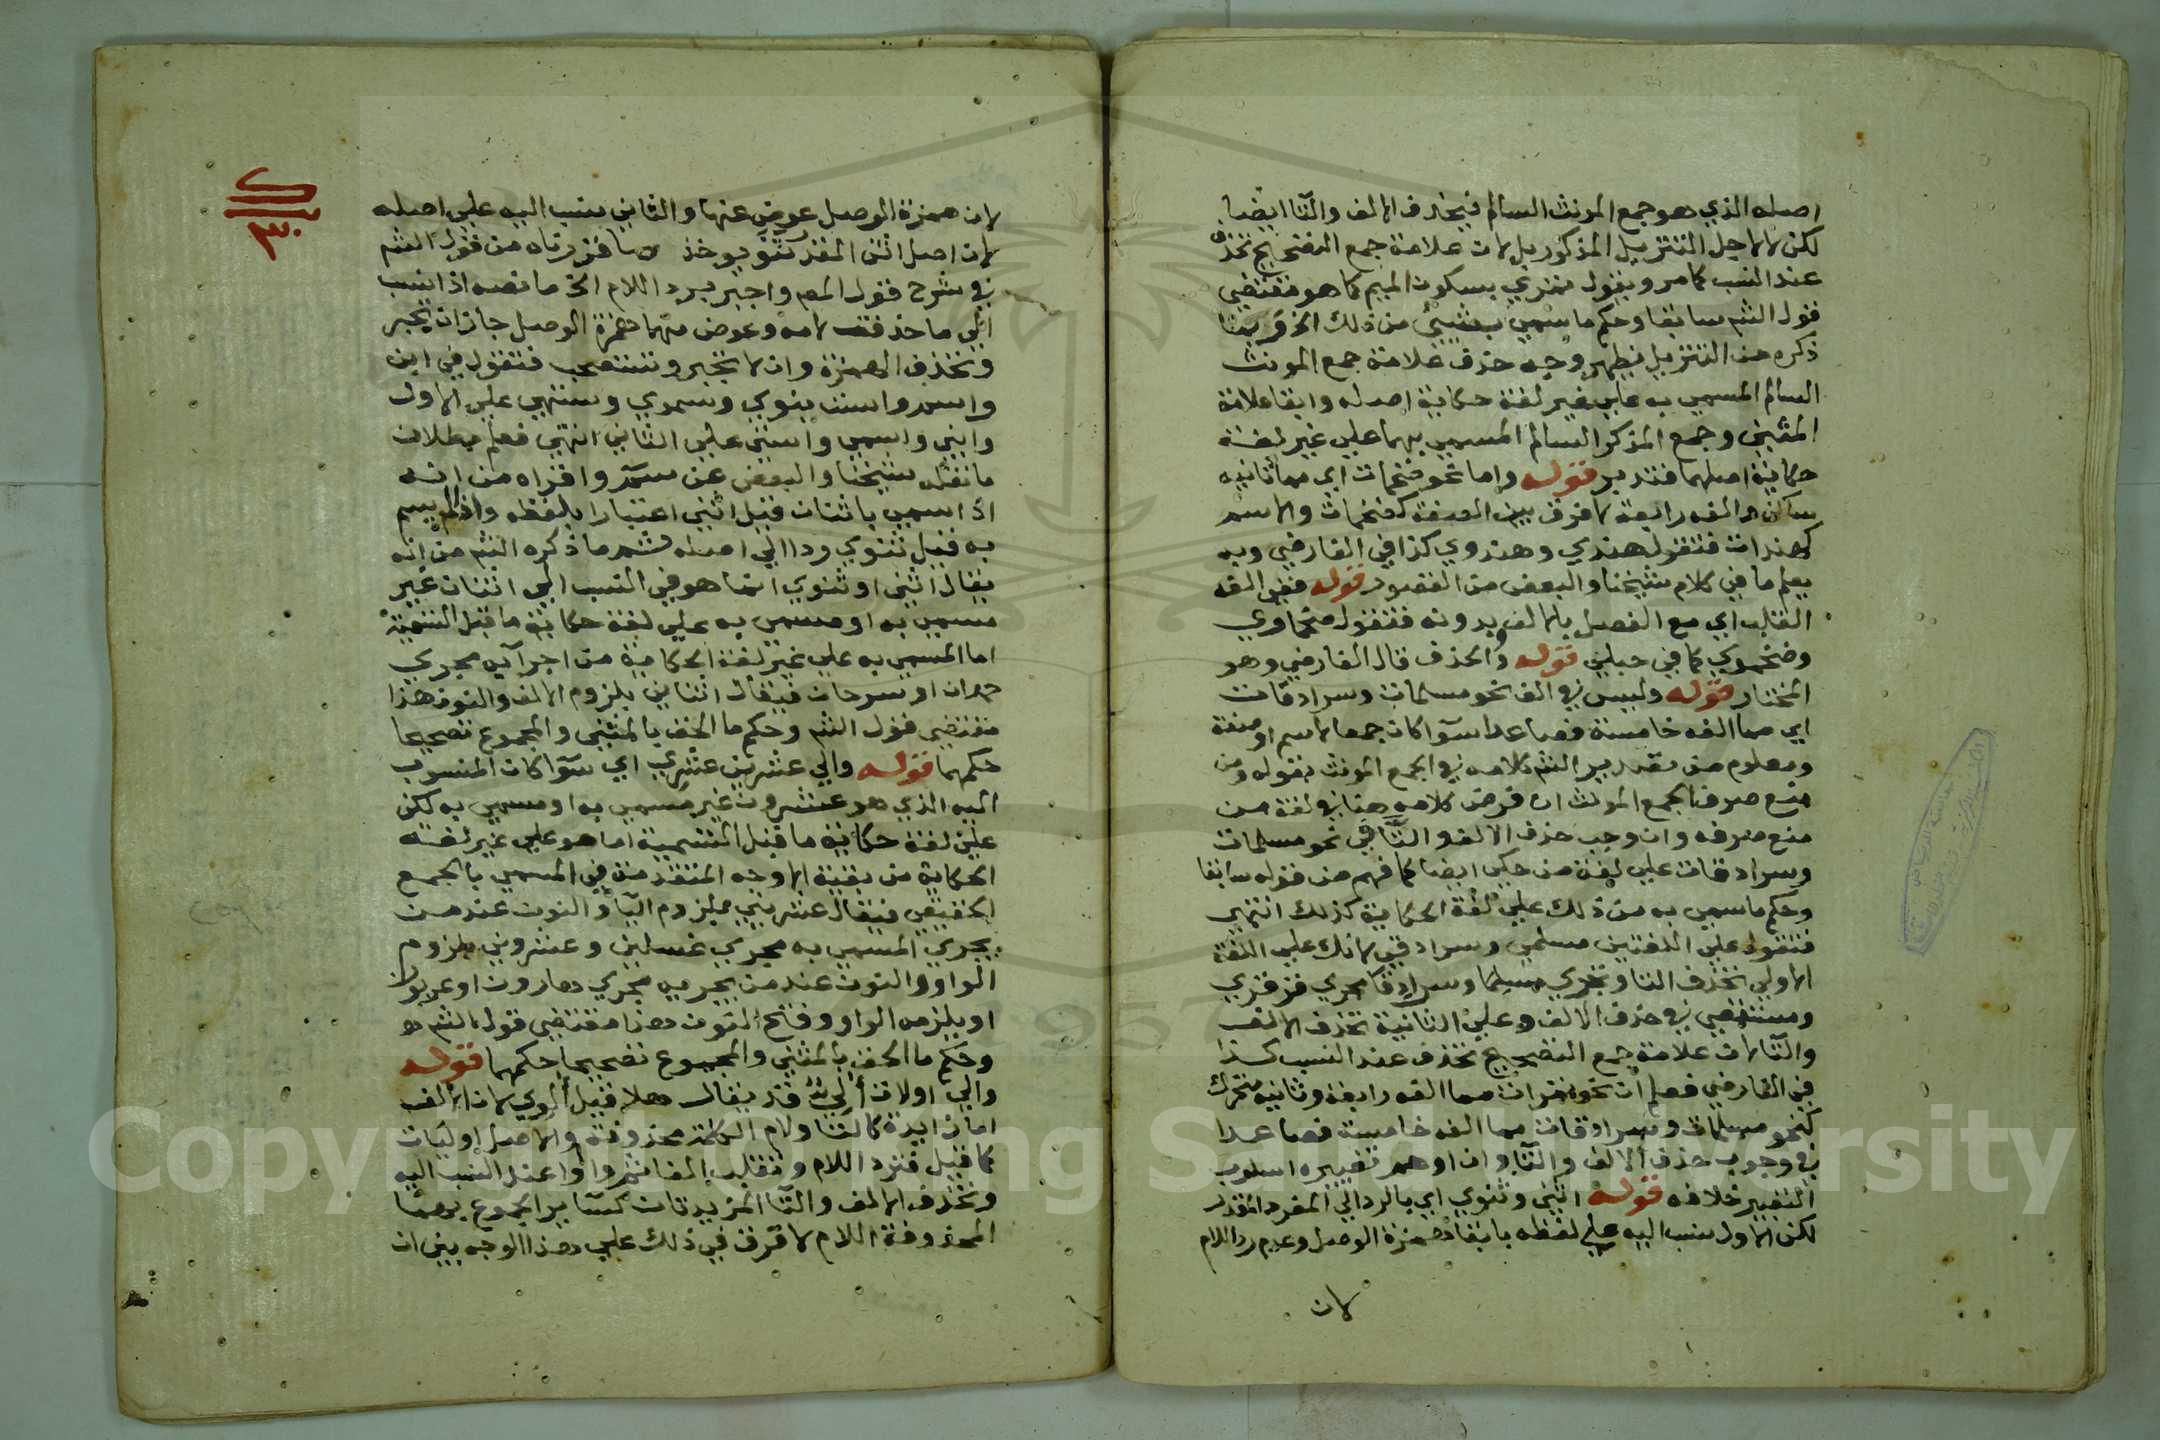 اصله الذي هو جمع المونث السالم فيحذف الالف والتا ايضا
لكن لا لاجل التنزيل المذكور بل لان علامة جمع التصحيح تحذف
عند النسب كما مر ويقول تمري بسكون الميم كما هو مقتضي
قول الشم سابقا وحكم ما سمي بشيئ من ذلك الخ وبهذا
ذكره من التنزيل يظهر وجه حذف علامة جمع المونث
السالم المسمي به علي غير لغة حكاية اصله وابقا علامة
المثني وجمع المذكر السالم المسمي بهما علي غير لغة
حكاية اصلهما فتدبر قوله واما نحو ضخمات اي مما ثانيه
ساكن والفه رابعة لا فرق بين الصفة كضخمات والاسم
كهندات فتقول هندي وهندوي كذا في الفارضي وبه
يعلم ما في كلام شيخنا والبعض من القصور قوله ففي الفه
القلب اي مع الفصل بالالف بدونه فتقول ضخماوي
وضخموي كما في حبلي قوله والحذف قال الفارضي وهو
المختار قوله وليس في الف نحو مسلمات وسرادقات
اي مما الفه خامسة فصاعدا سوآ كان جمعا لاسم او صفة
ومعلوم من تقدير الشم كلامه في الجمع المونث بقوله ومن
منع صرف الجمع المونث ان فرض كلامه هنا في لغة من
منع صرفه وان وجب حذف الالف والتا في نحو مسلمات
وسرادقات علي لغة من حكي ايضا كما فهم من قوله سابقا
وحكم ما سمي به من ذلك علي لغة الحكاية كذلك انتهي
فتقول علي اللغتين مسلمي وسرادقي لانك علي اللغة
الاولي تحذف التا وتجري مسلما وسرادقا مجري قرقري
ومستقصي في حذف الالف وعلي الثانية تحذف الالف
والتا لان علامة جمع التصحيح تحذف عند النسب كذا
في الفارضي فعلم ان نحو تمرات مما الفه رابعة وثانيه متحرك
كنحو مسلمات وسرادقات مما الفه خامسة فصاعدا
في وجوب حذف الالف والتا وان اوهم تغييره اسلوب
التغيير خلافه قوله اثني وثنوي اي بالرد الي المفرد المقدر
لكن الاول ينسب اليه علي لفظه بابقا همزة الوصل وعدم رد اللام
لان
٣٠
لان همزة الوصل عوض عنها والثاني ينسب اليه علي اصله
لان اصل اثن المقدر ثنو يوخذ ما قررناه من قول الشم
في شرح قول المص واجبر برد اللام الخ ما نصه اذا نسب
الي ما حذفت لامه وعوض منها همزة الوصل جاز ان تجبر
وتحذف الهمزة وان لا تجبر وتستصحب فتقول في ابن
واسم واست بنوي وسموي وستهي علي الاول
وابني واسمي واستي علي الثاني انتهي فعلم بطلان
ما نقله شيخنا والبعض عن سم واقراه من انه
اذا سمي باثنان قيل اثني اعتبارا بلفظه واذا لم يسم
به قيل ثنوي ردا الي اصله ثم ما ذكره الشم من انه
يقال اثني او ثنوي انما هو في النسب الي اثنان غير
مسمي به او مسمي به علي لغة حكاية ما قبل التسمية
اما المسمي به علي غير لغة الحكاية من اجرايه مجري
حمدان او سرحان فيقال اثناني بلزوم الالف والنون هذا
مقتضي قول الشم وحكم ما الحق بالمثني والمجموع تصحيحا
حكمهما قوله والي عشرين عشري اي سوآ كان المنسوب
اليه الذي هو عشرون غير مسمي به او مسمي به لكن
علي لغة حكاية ما قبل التسمية اما هو علي غير لغة
الحكاية من بقية الاوجه المتقدمة في المسمي بالجمع
الحقيقي فيقال عشريني بلزوم اليا والنون عند من
يجري المسمي به مجري غسلين وعشروني بلزوم
الواو والنون عند من يجريه مجري هارون او عربون
او يلزمه الواو وفتح النون هذا مقتضي قول الشم
وحكم ما الحق بالمثني والمجموع تصحيحا حكمهما قوله
والي اولات الي قد يقال هلا قيل الوي لان الالف
اما زايدة كالتا ولام الكلمة محذوفة والاصل اوليات
كما قيل فترد اللام وتقلب الفا ثم واوا عند النسب اليه
وتحذف الالف والتا المزيدتان كساير الجموع بهما
المحذوفة اللام لا فرق في ذلك علي هذا الوجه بين ان
Copyright © King Saud University
1957